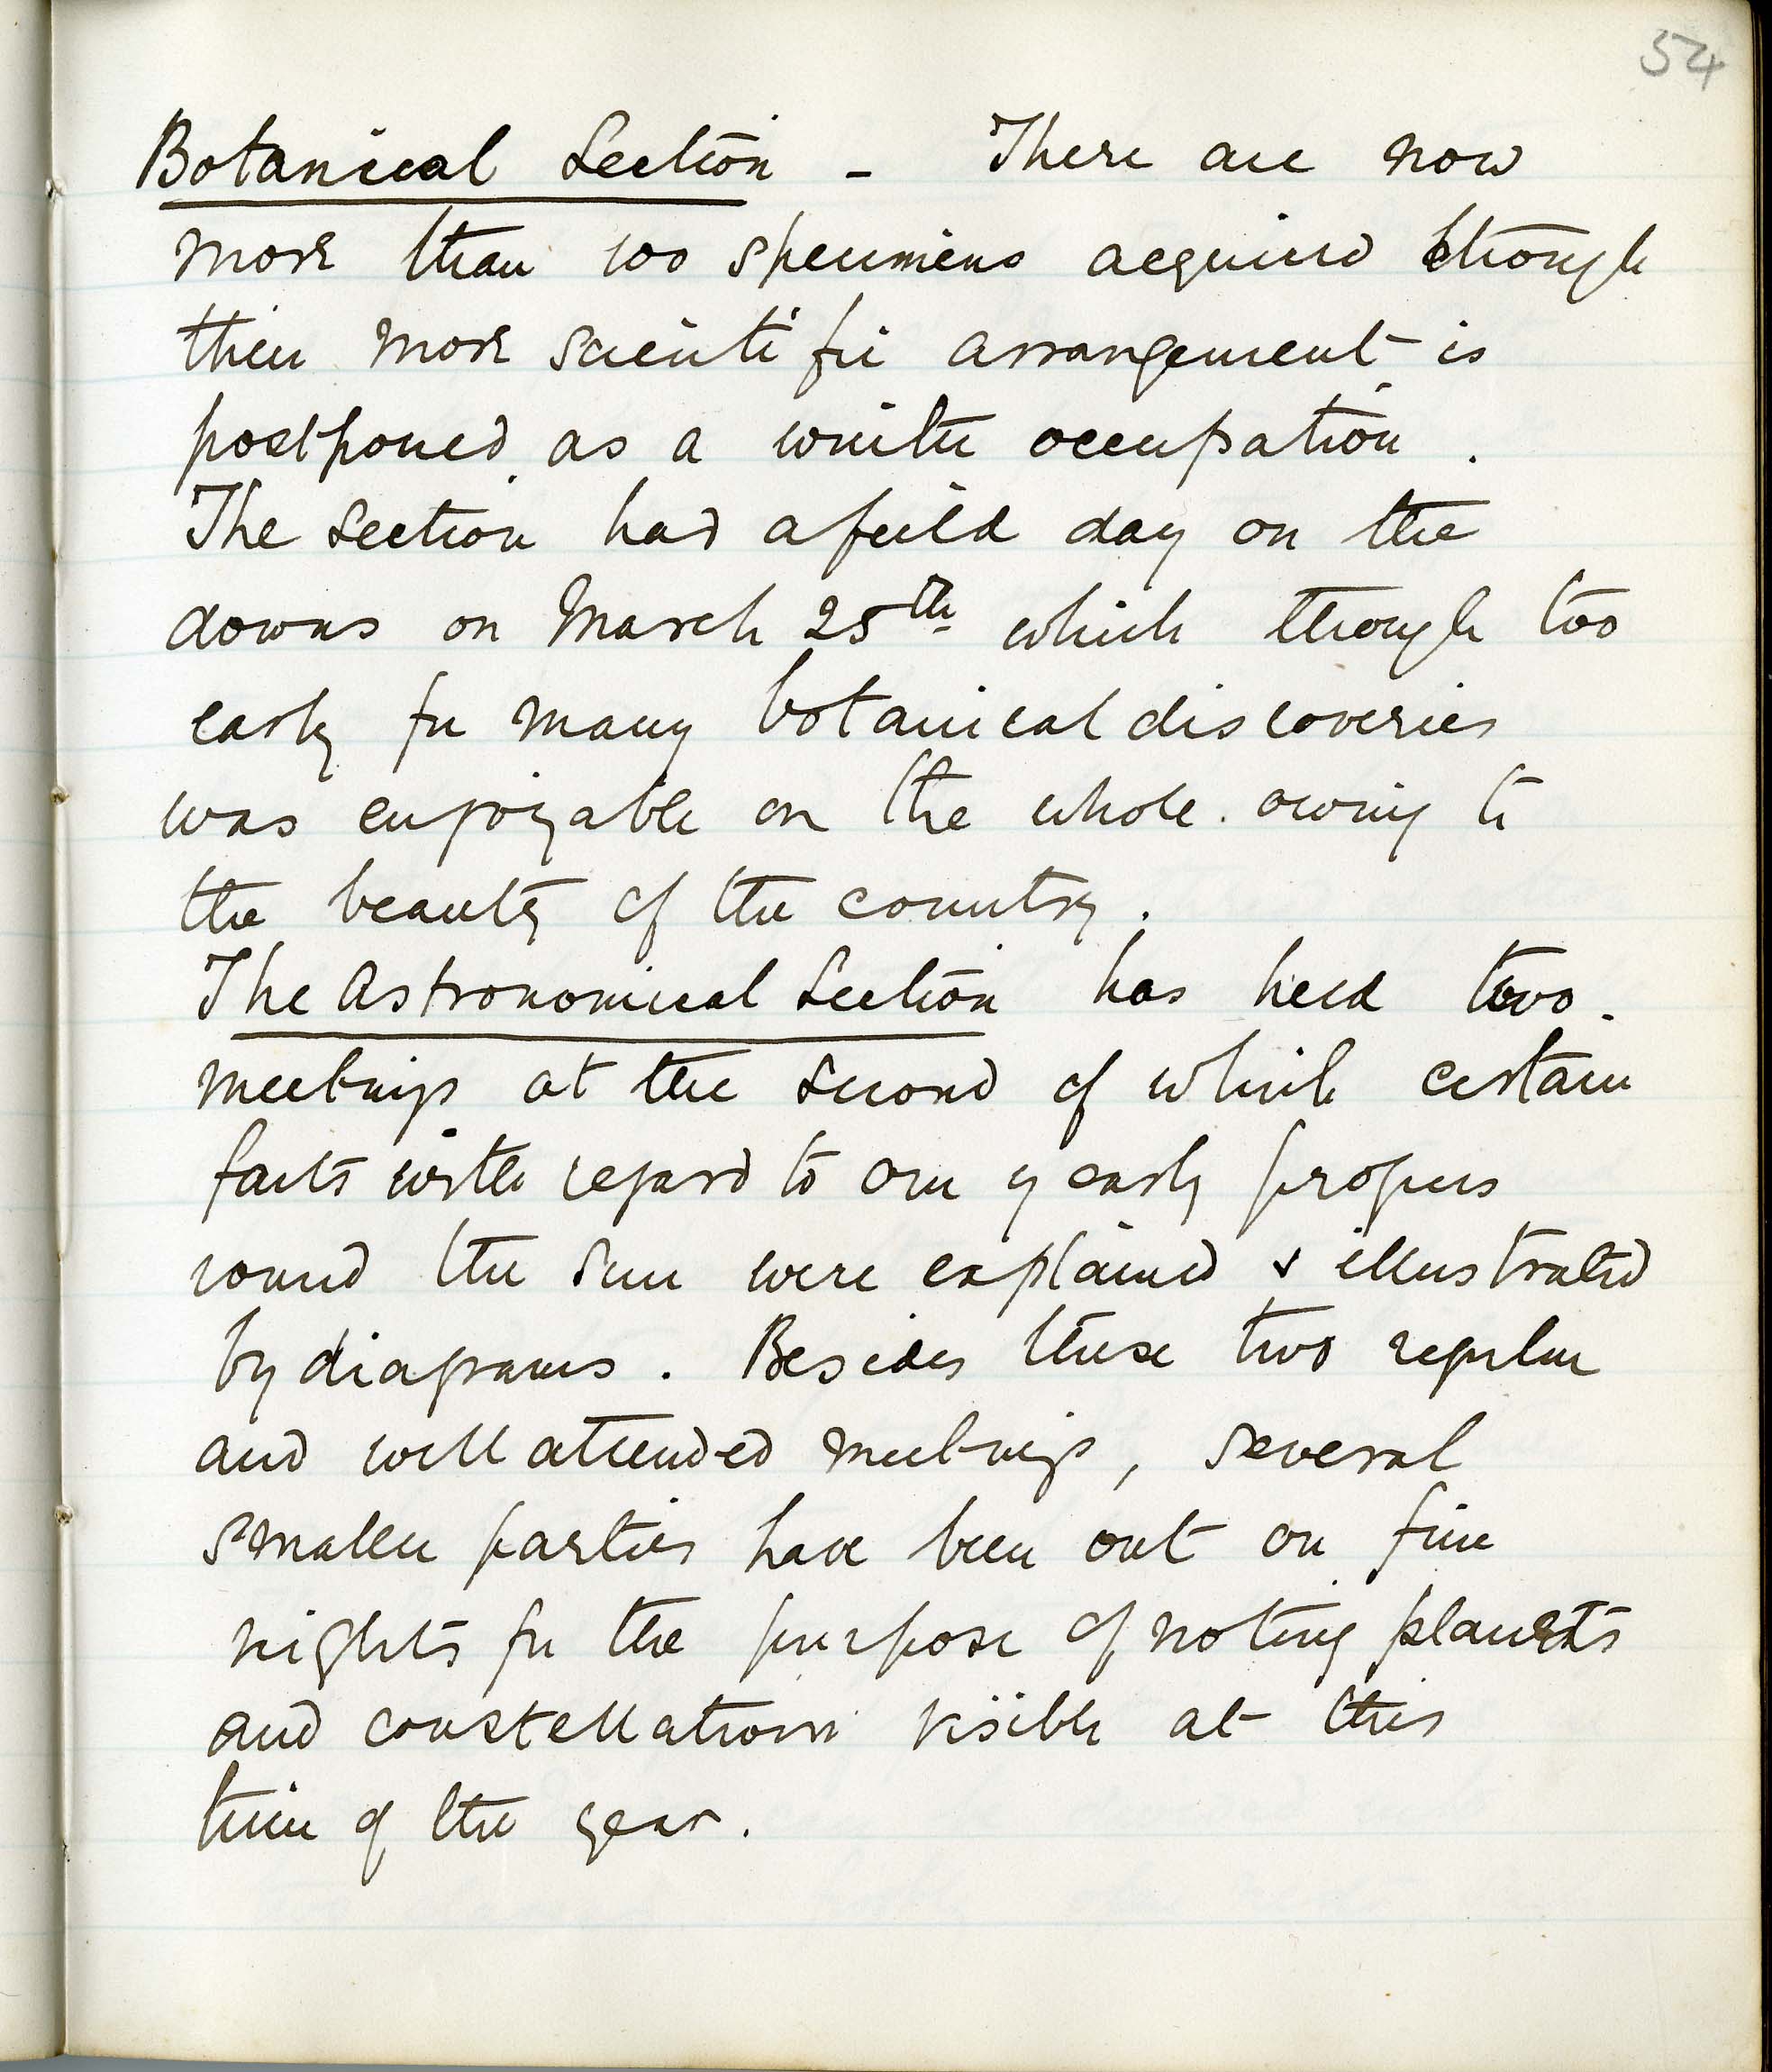 54
Botanical Section - There are now
more than 100 specimens acquired though
their more scientific arrangement is
postponed as a winter occupation.
The Section had a feild day on the
downs on March 25th which though too
early for many botanical discoveries
was enjoyable on the whole. owing to
the beauty of the country.
The Astronomical Section has held two
meetings at the second of which certain
facts with regard to our yearly progress
round the Sun were explained & illustrated
by diagrams. Besides these two regular
and well attended meetings, several
smaller parties have been out on fine
nights for the purpose of noting planets
and constellations visible at this
time of the year.